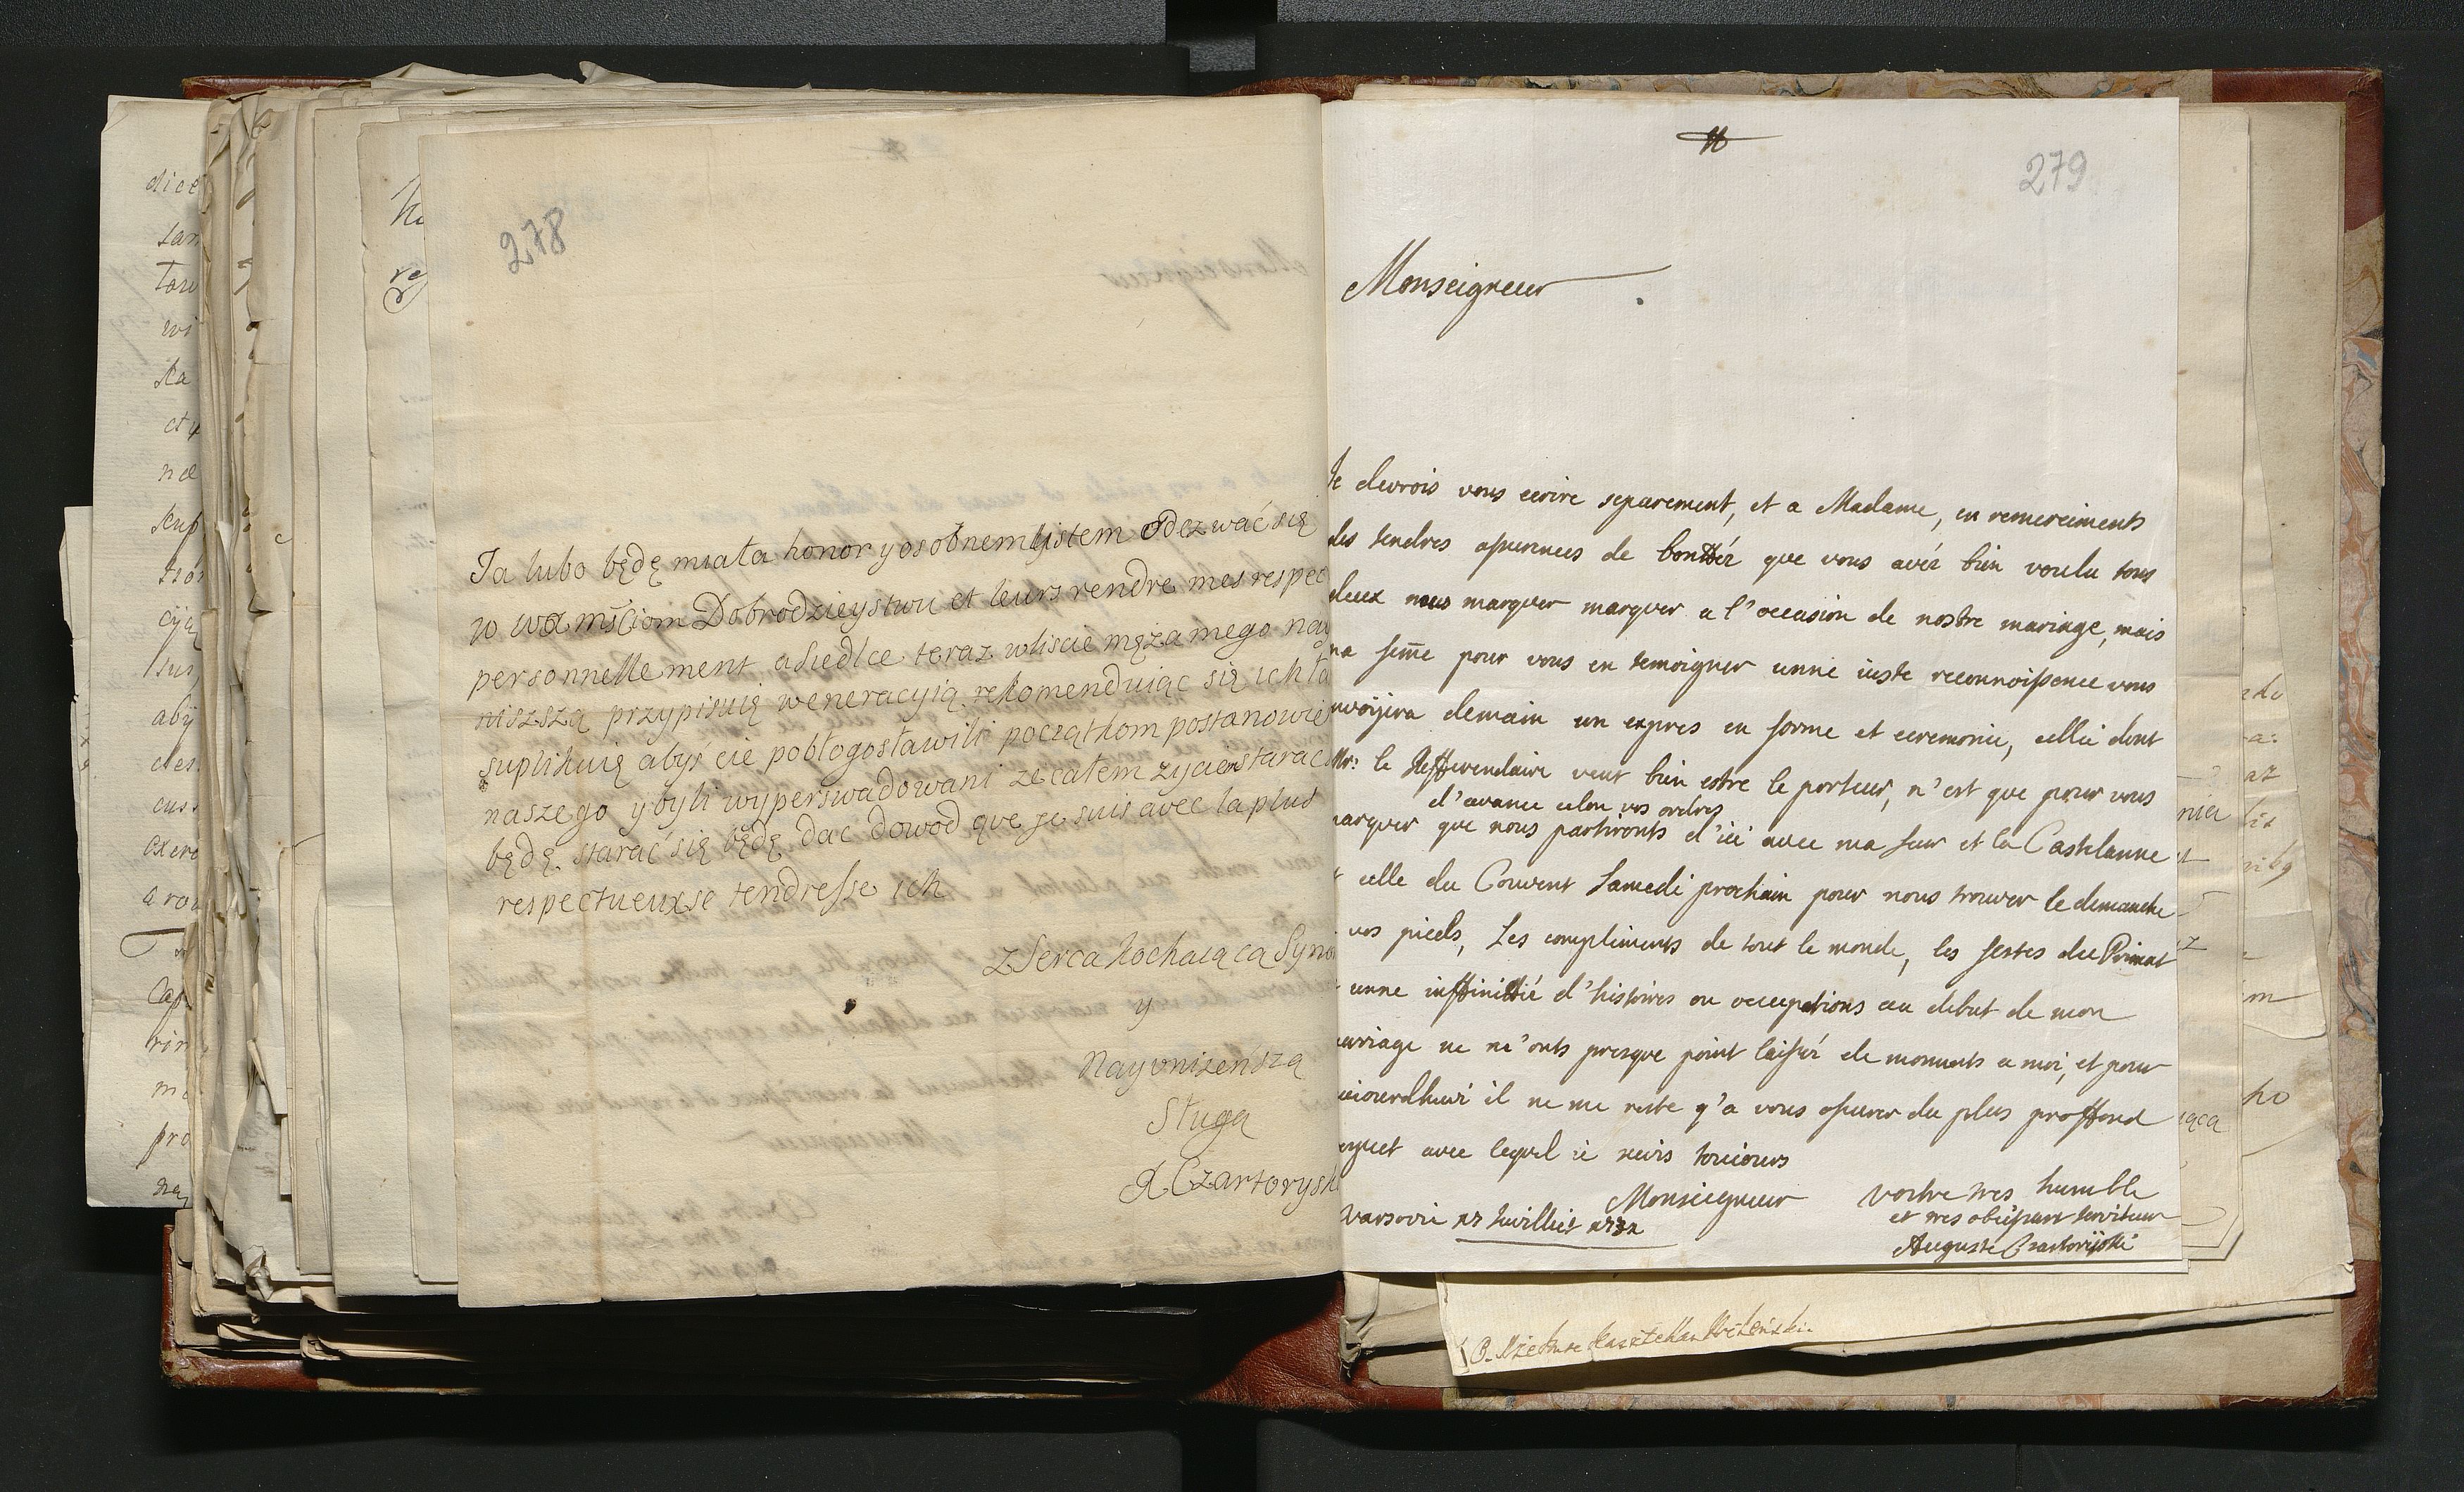 278
Ja lubo będę miała honor y osobnem listem odezwać się
w wa mściom Dobrodzieystwu et leurs rendre mes respec
personnellement a Siedlce teraz w liscie męza mego nay
niszszą przypisuię weneracyią rekomenduiąc się ich ła
suplikuię abyś cie pobłogosławili początkom postanowie
naszego y byli wyperswadowani ze całem zyciem starac
będę starać się będę dac dowod que je suis avec la plus
respectueuxse tendresse ich
z Serca kochaiąca Syno
y
Nayvnizeńsza
Sługa
Czartorysk
279
Monseigneur
Je devrois vous ecrire separement, et a Madame, en remerciments
des tendres assurences de bontéz que vous avéz bien voulu tous
deux nous marquer marquer a l'occasion de nostre mariage, mais
ma feme pour vous en temoigner unne iuste reconnoissence vous
envoijera demain un expres en forme et ceremonie, cellui dont
Mr: le Refferendaire veut bien estre le porteur, n'est que pour vous
d'avance celon vos ordres
marquer que nous partironts d'ici avec ma seur et la Castelanne
et celle du Couvent Samedi prochain pour nous trouver le dimanche
vos pieds, Les compliments de tout le monde, les festes du Primat
et unne inffinittié d'histoires ou occupations au debut de mon
mariage ne m'onts presque point laissé de moments a moi, et pour
auiourdhuui il ne me reste q'a vous assurer du plus proffond
respect avec lequel ie suis touiours
Monseigneur
Vostre tres humble
et tres obeissant serviteur
Varsovie 17 Juillet 1731
Auguste Czartorijski